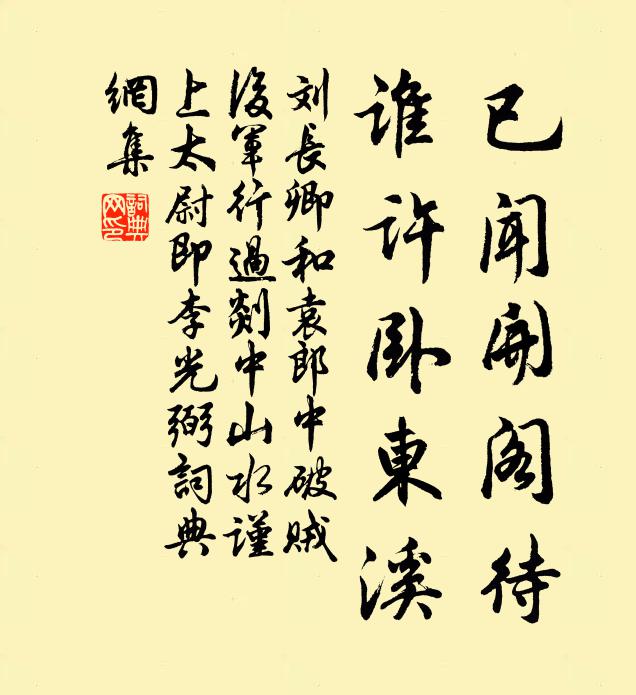 已闻開阁待
谁许卧東溪
刘長卿和袁郎中破贼
後軍行過剡中山水謹
上太尉即李光弼詞典
網集
詞典网印